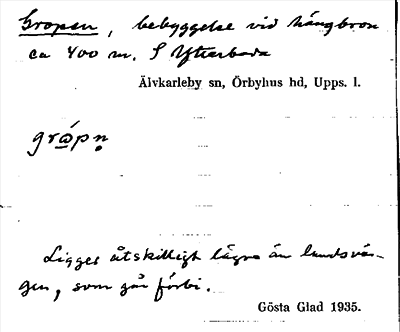 Gropen, bebyggelse vid hängbron
ca 400 m. S Ytterboda
Älvkarleby sn, Örbyhus hd, Upps. l.
grápn̥
Ligger åtskilligt lägre än landsvä-
gen, som går förbi.
Gösta Glad 1935.